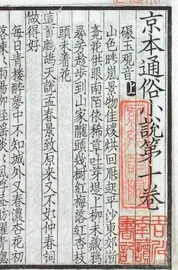 京本通俗小說第十卷
碾玉觀音上
山色晴嵐景物佳煖烘回鴈起平沙東郊漸
花供眼南陌依稀草吐芽堤上柳未藏鴉
尋芳趂步到山家隴頭幾樹紅梅落紅杏枝
頭未着花
這首鷓鴣天說孟春景致原來又不如仲春詞
做得好
每日青樓醉夢中不知城外又春濃杏花初
落疎疎雨楊柳輕搖淡淡風浮畫舫躍青